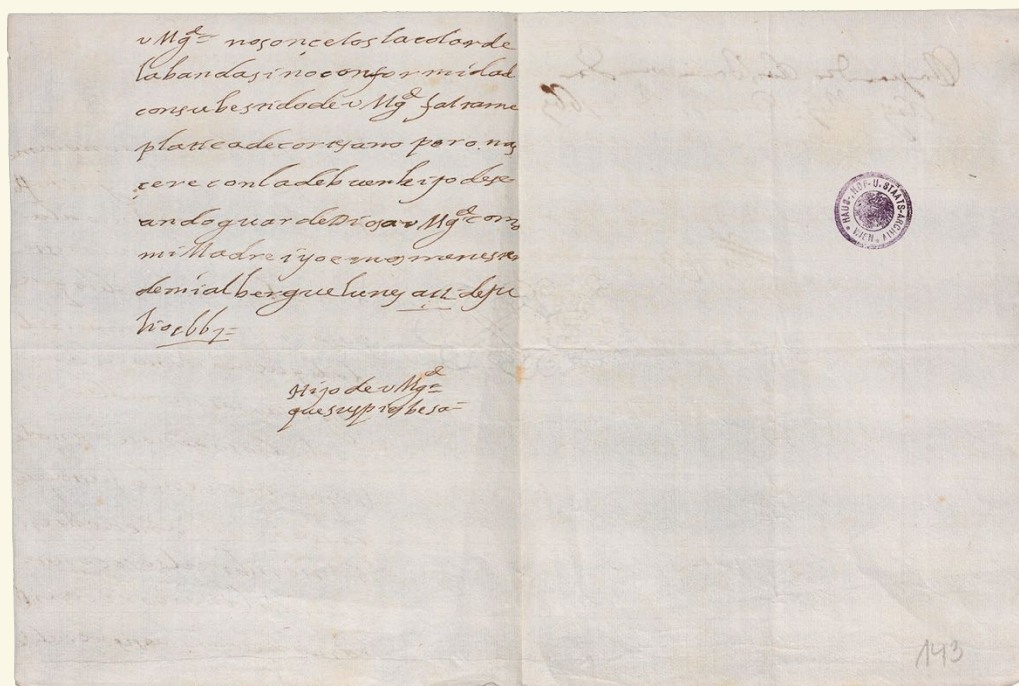 v Mgd= no son celos la color de
la banda sino conformidad
con su bestido de v Mgd faltame
platica de cortesano pero na
cere con la de buen hijo dese
ando guarde Dios a v Mgd como
mi Madre i yo emos menester
de mi albergue lunes a 12 de Ju
lio 1667=
Hijo de v Mgd=
que sus pies besa=
HAUS- HOF- U. STAATS-ARCHIV
WIEN
143